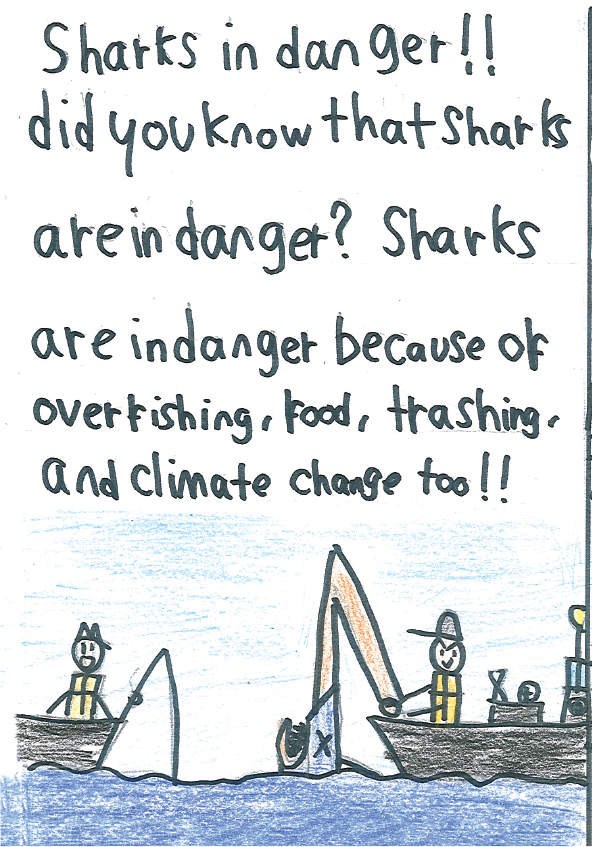 Sharks in danger!!
did you know that Sharks
are in danger? Sharks
are in danger because of
overfishing, food, trashing,
and climate change too!!